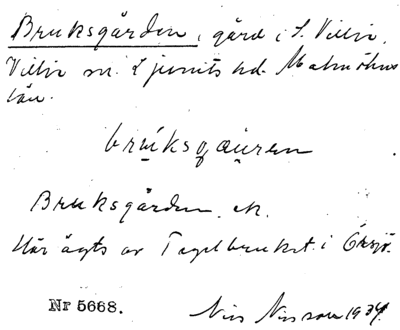 Bruksgården, gård i S. Villie,
Villie sn. Ljunits hd. Malmöhus
län.
brúksgæuren
Bruksgården. ek.
Har ägts av Tegelbruket i Örsjö.
Nr 5668.
Nils Nilsson 1934.